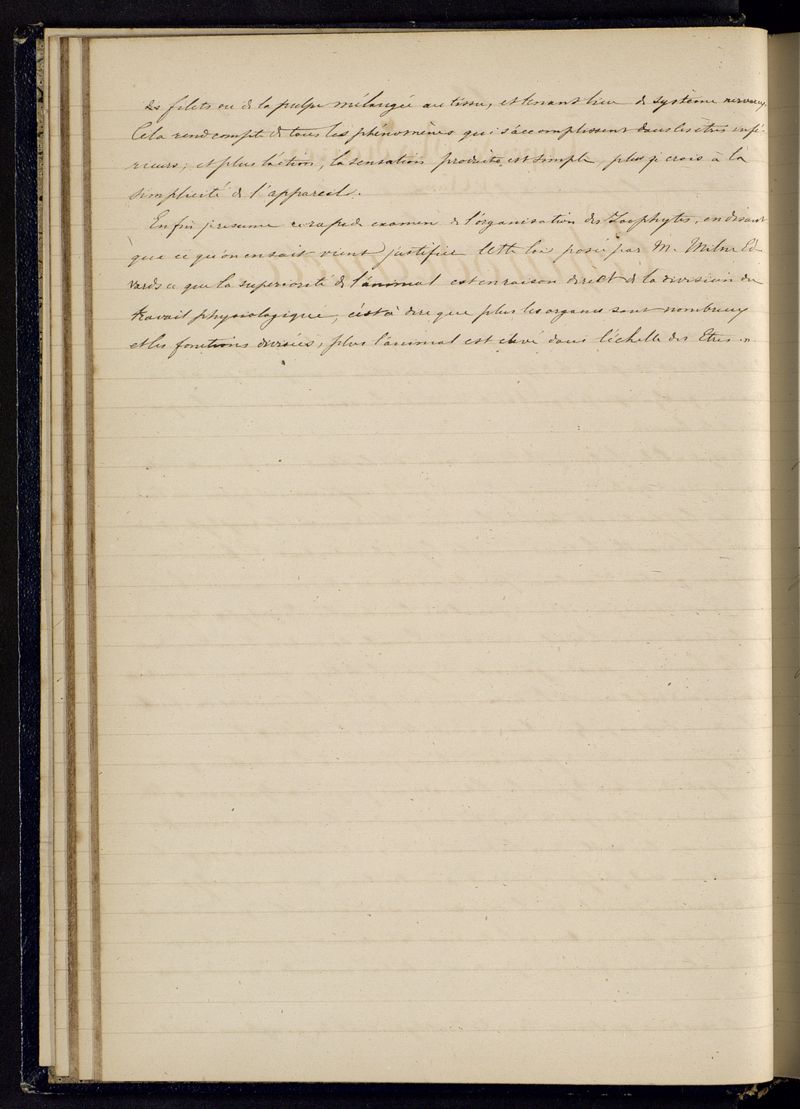 des filets ou de la pulpe mélangée au tissu, et tenant lieu de système nerveux.
Cela rend compte de tous les phénomènes qui s'accomplissent dans les êtres infé-
rieurs; et plus l'action, la sensation produite est simple, plus je crois à la
simplicité de l'appareil.
Enfin je résume ce rapide examen de l'organisation des Zoophytes, en disant
que ce qu'on en sait vient justifier cette loi posée par M. Milne Ed-
wards « que la supériorité de l'animal est en raison direct de la division du
travail physiologique, c'est à dire que plus les organes sont nombreux
et les fonctions divisées, plus l'animal est élevé dans l'échelle des Etres. »